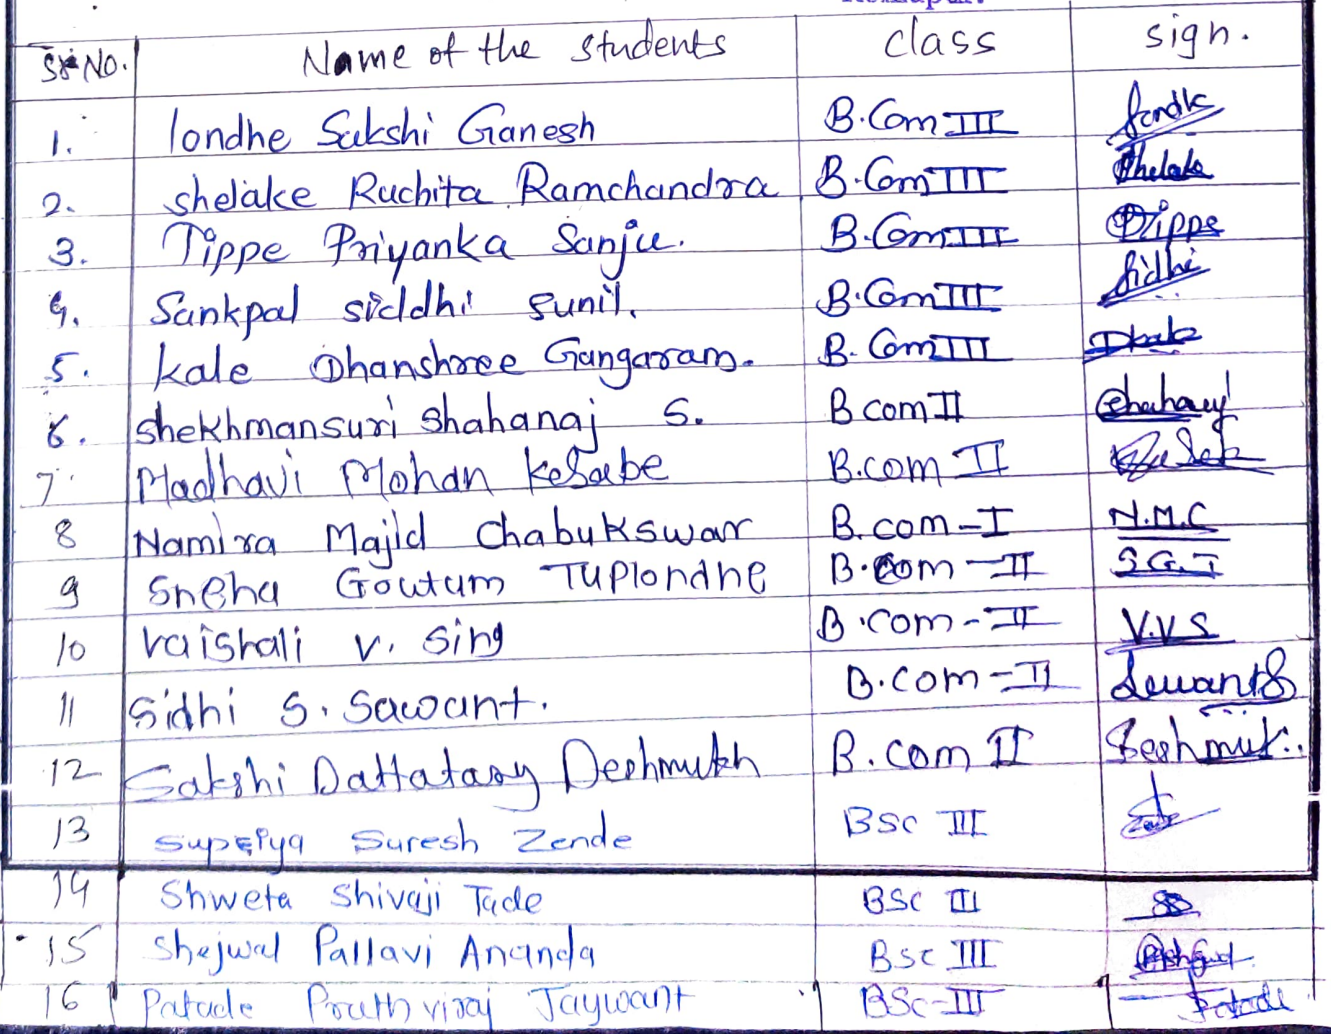 Sr No. Name of the students class sign.
1. londhe Sakshi Ganesh B.Com III Londhe
2. shelake Ruchita Ramchandra B.Com III Shelake
3. Tippe Priyanka Sanju. B.Com III Tippe
4. Sankpal siddhi sunil. B.Com III Sidhi
5. kale Dhanshree Gangaram. B.Com III
6. shekhmansuri shahanaj S. B com II
7. Madhavi Mohan kesarbe B.com II
8 Namira Majid Chabukswar B.com-I N.M.C
9 Sneha Goutam Tuplondhe B.com-II S.G.T
10 vaishali v. sing B.com-II V.V.S
11 Sidhi S. Sawant. B.com-II SawantS
12 Sakshi Dattatray Deshmukh B.com II
13 Supriya Suresh Zende BSc III
14 Shweta Shivaji Tade BSc III
15 Shejwal Pallavi Ananda BSc III
16 Patade Pruthviraj Jaywant BSc-III Patade